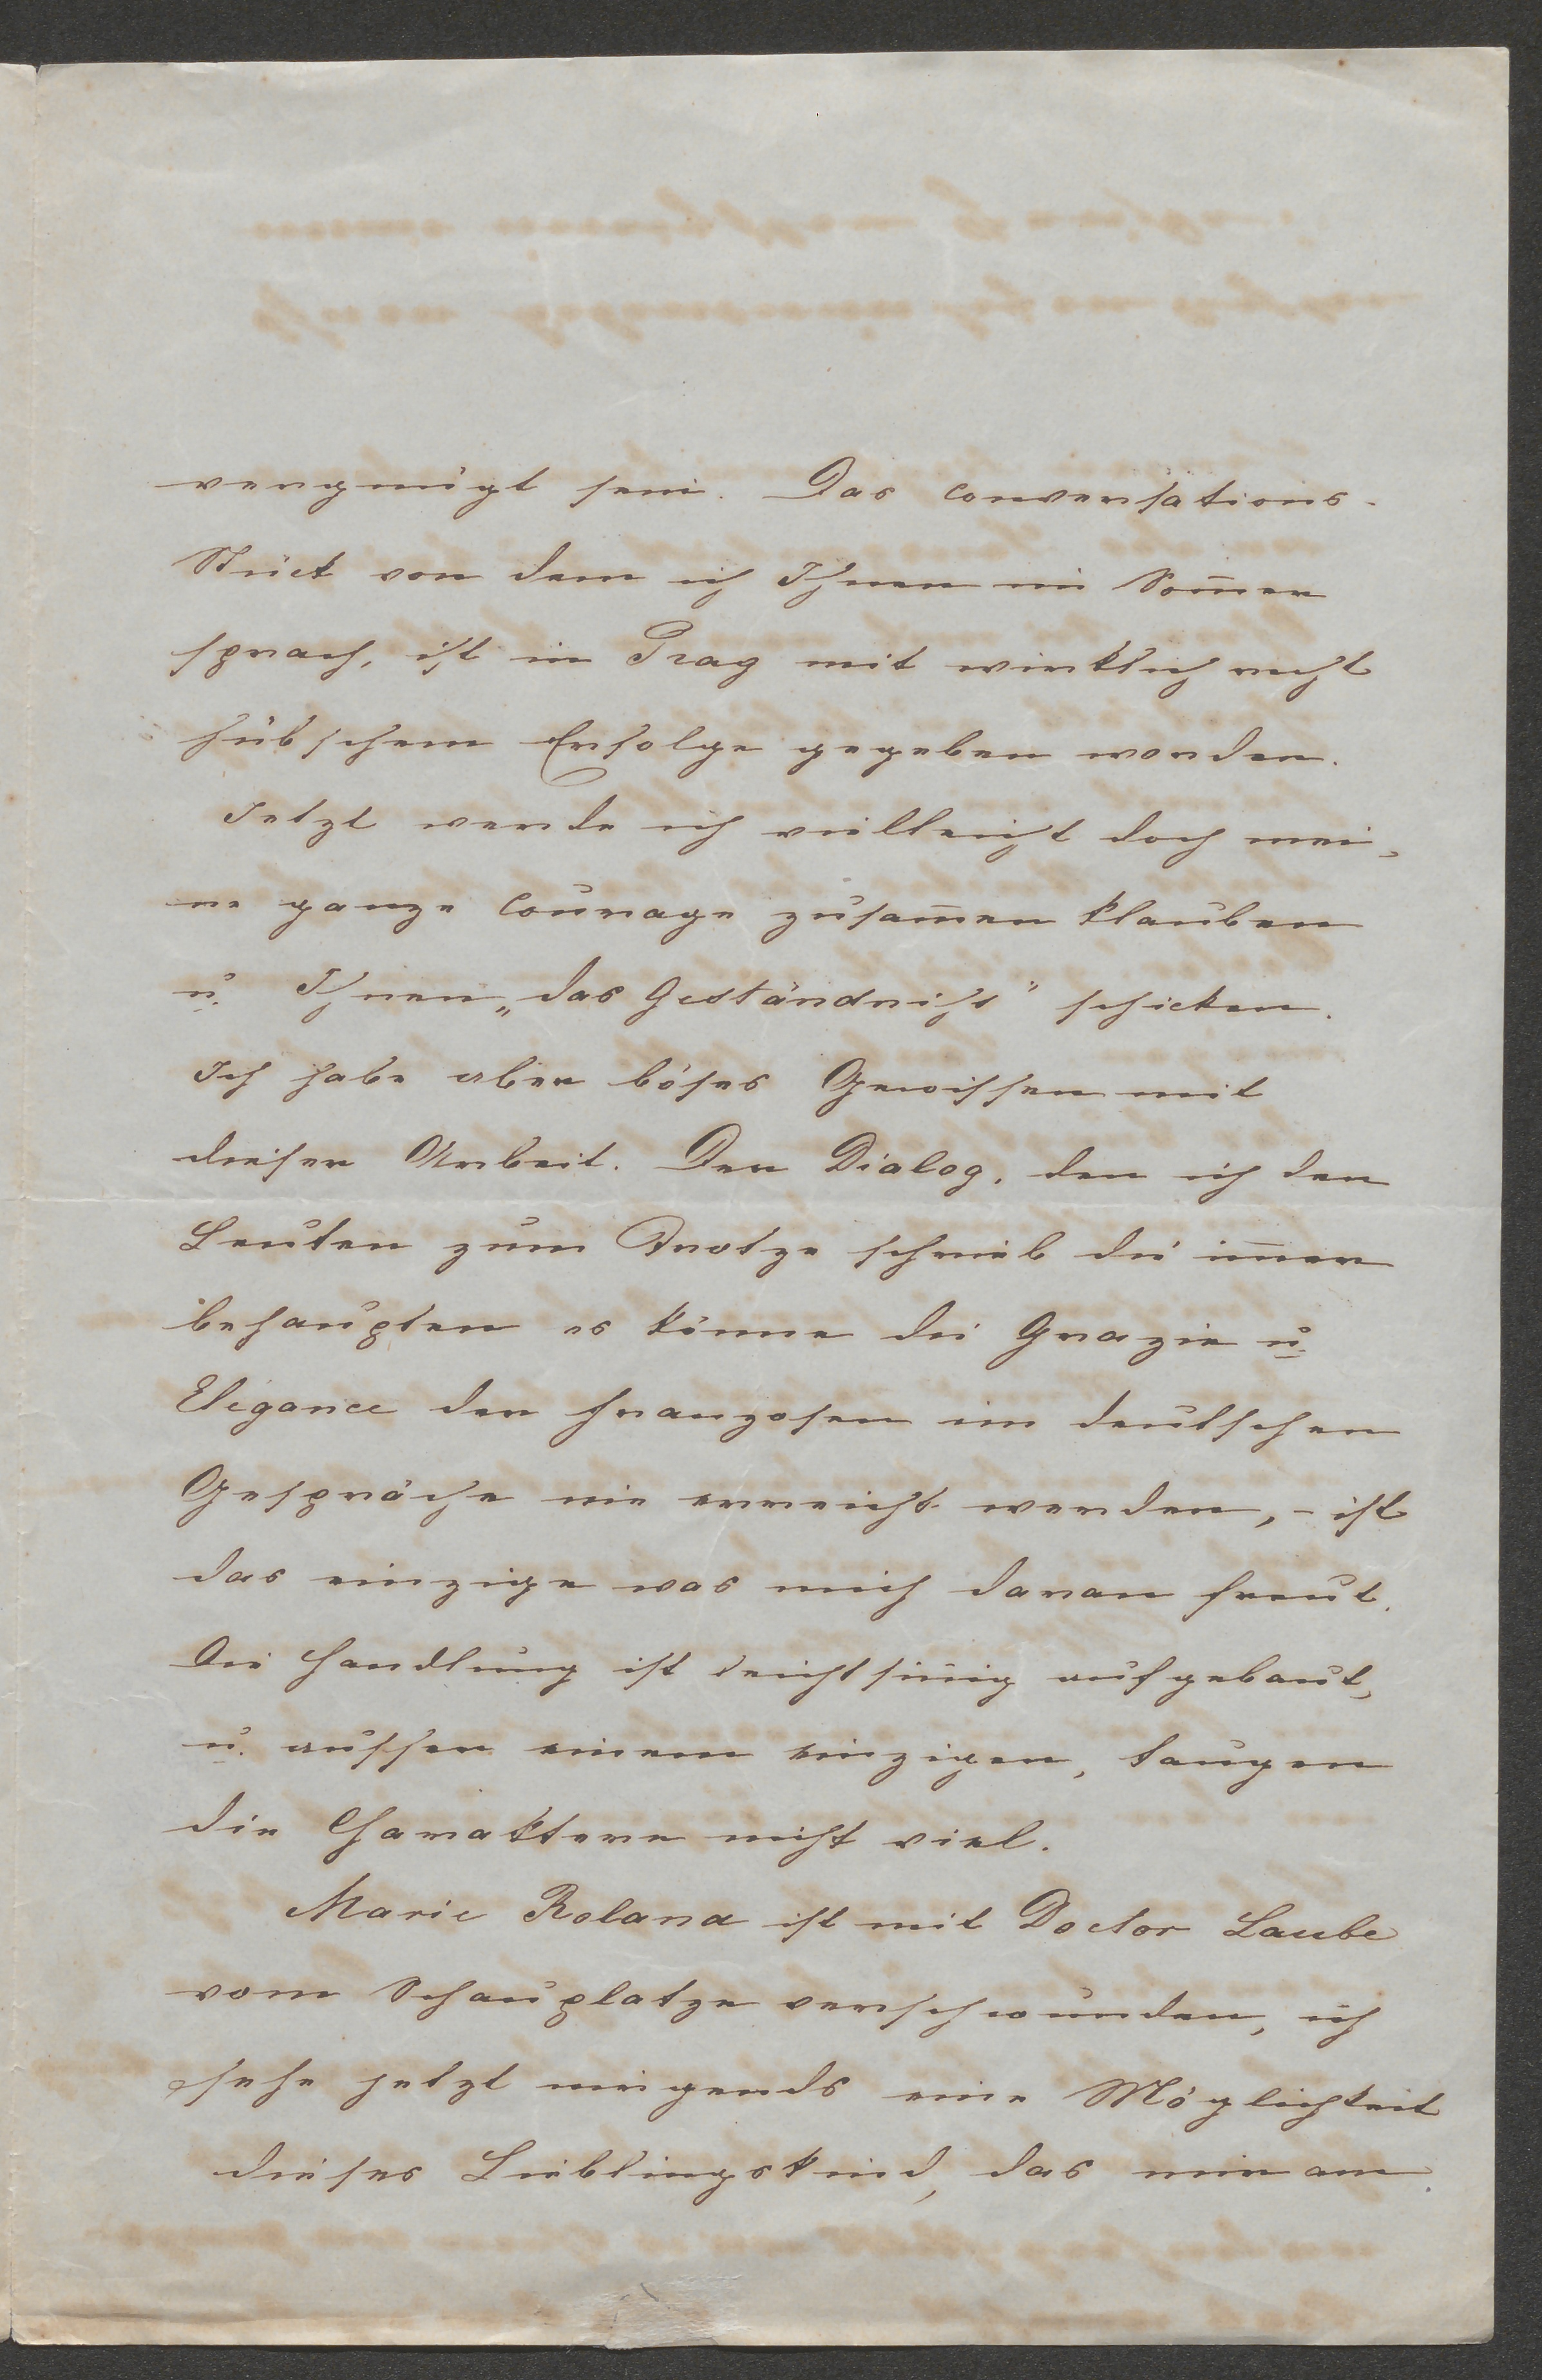 vergnügt sein. Das Conversations-
Stück von dem ich Ihnen im Som̅er
sprach, ist in Prag mit wirklich recht
hübschem Erfolge gegeben worden.
Jetzt werde ich vielleicht doch mei-
ne ganze Courage zusam̅en klauben
u. Ihnen „das Geständniß" schicken.
Ich habe aber böses Gewissen mit
dieser Arbeit. Der Dialog, den ich den
Leuten zum Trotze schrieb die im̅er
behaupten es könne die Grazie u.
Elegance der Franzosen im deutschen
Gespräche nie erreicht werden, - ist
das einzige was mich daran freut.
Die Handlung ist leichtsin̅ig aufgebaut,
u. ausser einem einzigen, taugen
die Charaktere nicht viel.
Marie Roland ist mit Doctor Laube
vom Schauplatze verschwunden, ich
sehe jetzt nirgends eine Möglichkeit
dieses Lieblingskind, das mir am